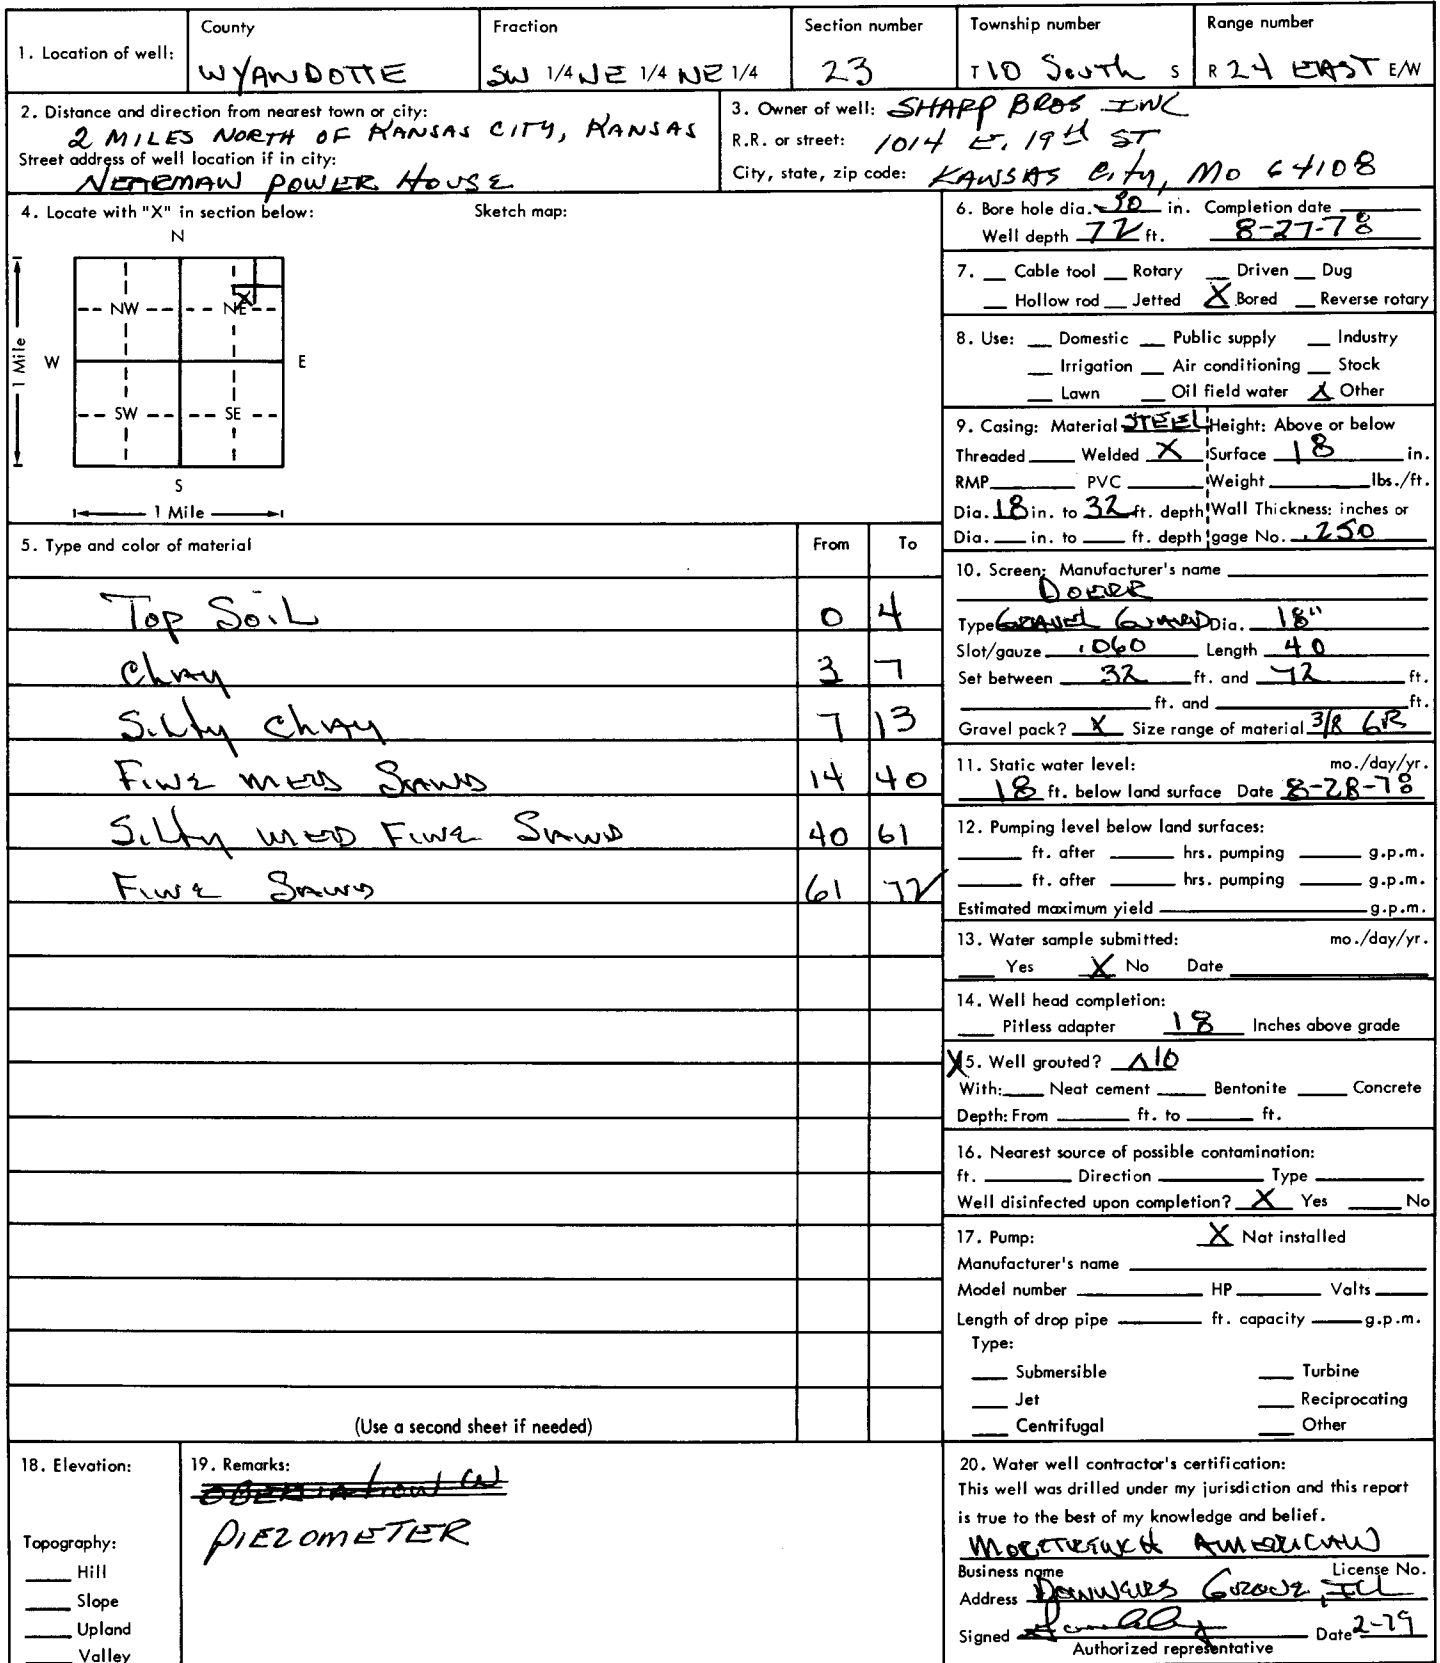 1. Location of well:
County
WYANDOTTE
Fraction
SW 1/4 NE 1/4 NE 1/4
Section number
23
Township number
T 10 South S
Range number
R 24 EAST E/W
2. Distance and direction from nearest town or city:
2 MILES NORTH OF KANSAS CITY, KANSAS
Street address of well location if in city:
NEARMAN POWER HOUSE
3. Owner of well: SHARP BROS INC
R.R. or street: 1014 E. 19th ST
City, state, zip code: KANSAS City, MO 64108
4. Locate with "X" in section below:
Sketch map:
N
NW NE
X
W E
1 Mile
SW SE
S
1 Mile
5. Type and color of material From To
Top Soil 0 4
Clay 3 7
Silty Clay 7 13
Fine MED SAND 14 40
Silty MED Fine SAND 40 61
Fine SAND 61 72
(Use a second sheet if needed)
6. Bore hole dia. 30 in. Completion date
Well depth 72 ft. 8-27-78
7. Cable tool Rotary Driven Dug
Hollow rod Jetted X Bored Reverse rotary
8. Use: Domestic Public supply Industry
Irrigation Air conditioning Stock
Lawn Oil field water X Other
9. Casing: Material STEEL Height: Above or below
Threaded Welded X Surface 18 in.
RMP PVC Weight lbs./ft.
Dia. 18 in. to 32 ft. depth Wall Thickness: inches or
Dia. in. to ft. depth gage No. .250
10. Screen: Manufacturer's name
DOERR
Type GRAVEL GUARD Dia. 18"
Slot/gauze .060 Length 40
Set between 32 ft. and 72 ft.
ft. and ft.
Gravel pack? X Size range of material 3/8 GR
11. Static water level: mo./day/yr.
18 ft. below land surface Date 8-28-78
12. Pumping level below land surfaces:
ft. after hrs. pumping g.p.m.
ft. after hrs. pumping g.p.m.
Estimated maximum yield g.p.m.
13. Water sample submitted: mo./day/yr.
Yes X No Date
14. Well head completion:
Pitless adapter 18 Inches above grade
X15. Well grouted? NO
With: Neat cement Bentonite Concrete
Depth: From ft. to ft.
16. Nearest source of possible contamination:
ft. Direction Type
Well disinfected upon completion? X Yes No
17. Pump: X Not installed
Manufacturer's name
Model number HP Volts
Length of drop pipe ft. capacity g.p.m.
Type:
Submersible Turbine
Jet Reciprocating
Centrifugal Other
18. Elevation:
Topography:
Hill
Slope
Upland
Valley
19. Remarks:
PIEZOMETER
20. Water well contractor's certification:
This well was drilled under my jurisdiction and this report
is true to the best of my knowledge and belief.
MORETRENCH AMERICAN
Business name License No.
Address DOWNERS GROVE, ILL
Signed Date 2-79
Authorized representative